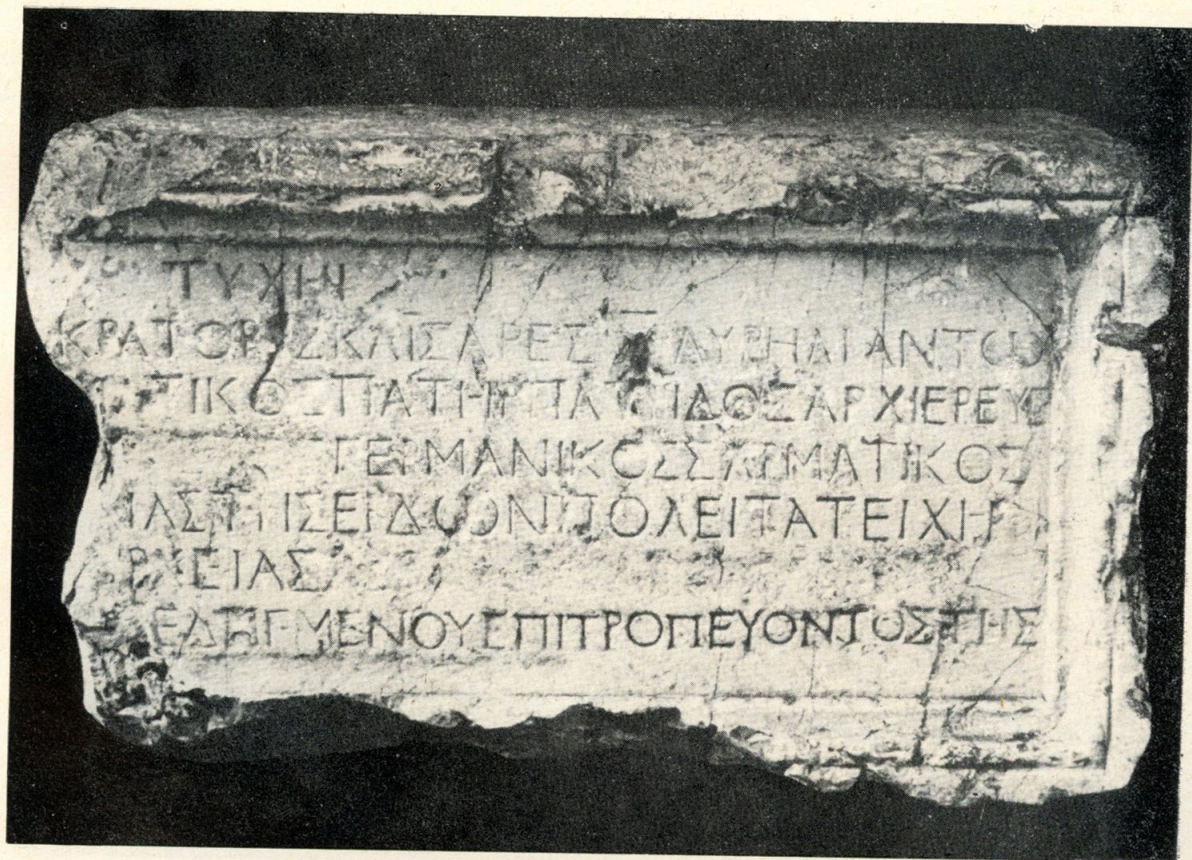 ΤΥΧΗΙ
ΚΡΑΤΟΡ ΣΚΑΙΣΑΡΕΣ ΑΥΡΗΛΙ ΑΝΤΩ
ΤΙΚΟΣ ΠΑΤΗΡ ΠΑ ΙΔΟΣ ΑΡΧΙΕΡΕΥΣ
ΓΕΡΜΑΝΙΚΟΣ ΣΑΡΜΑΤΙΚΟΣ
ΕΙΔΩΝ ΠΟΛΕΙ ΤΑ ΤΕΙΧΗ
ΕΙΑΣ
ΜΕΝΟΥ ΕΠΙΤΡΟΠΕΥΟΝΤΟΣ ΤΗΣ